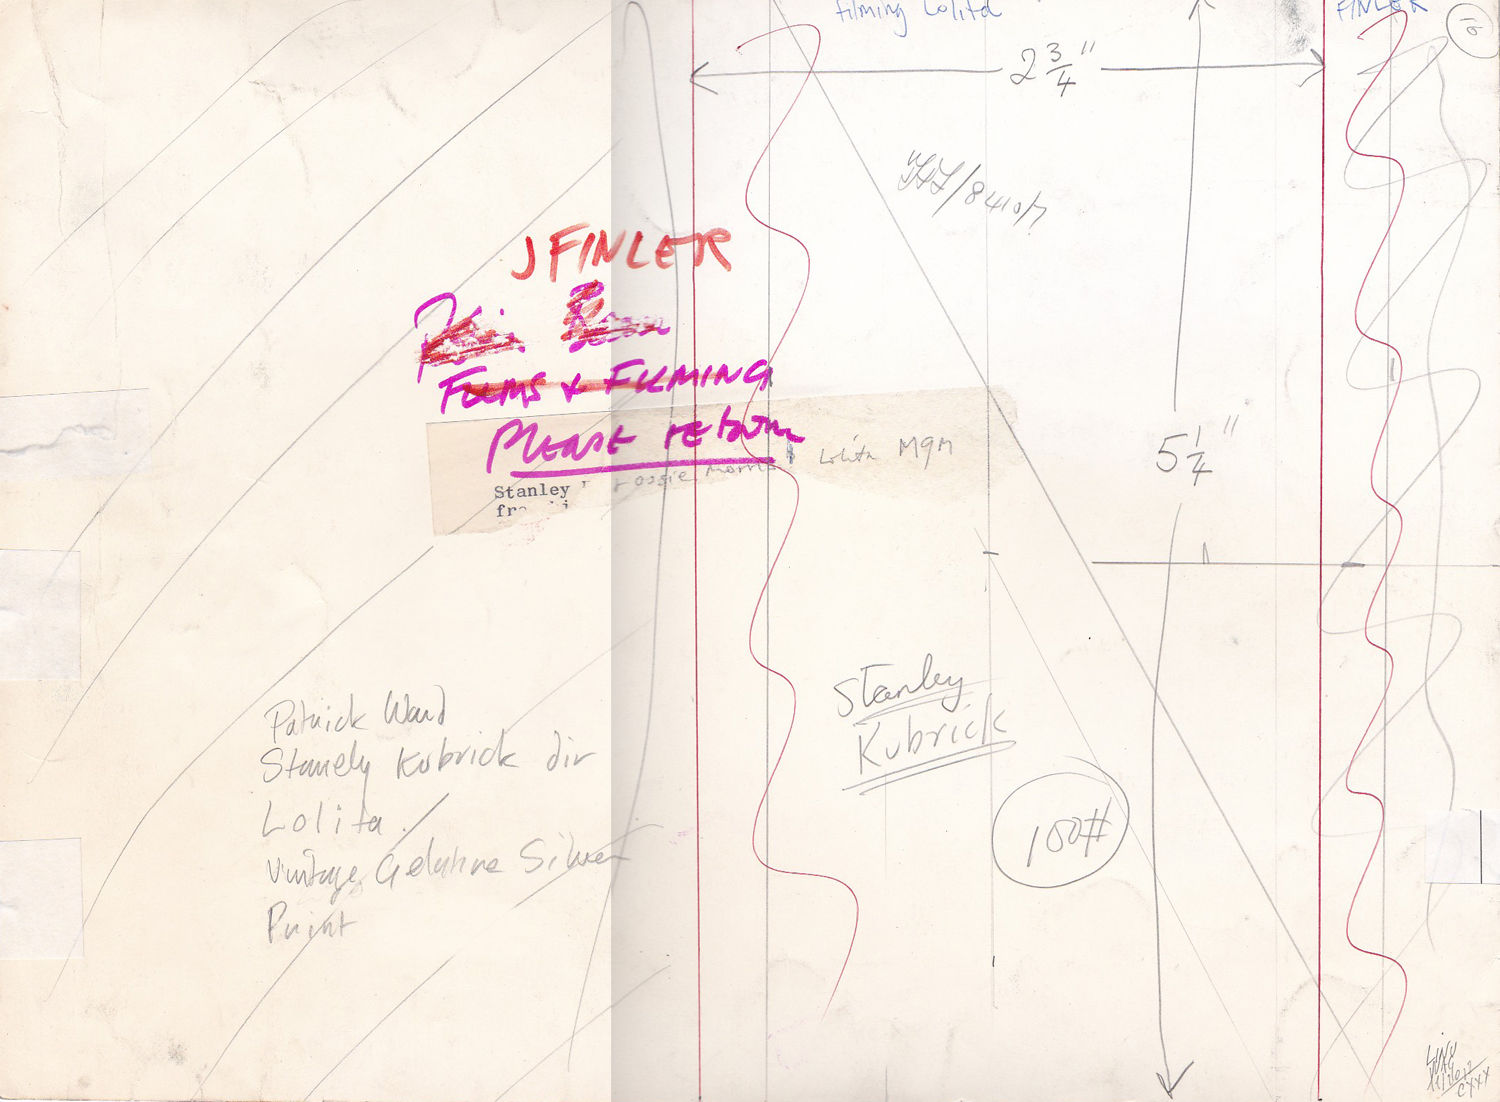 filming Lolita
FINLER
16
2 3/4"
J FINLER
FILMS & FILMING
PLEASE return
Stanley
Lolita MGM
5 1/4"
Stanley
Kubrick
100#
Patrick Ward
Stanely Kubrick dir
Lolita.
Vintage Gelatine Silver
Print